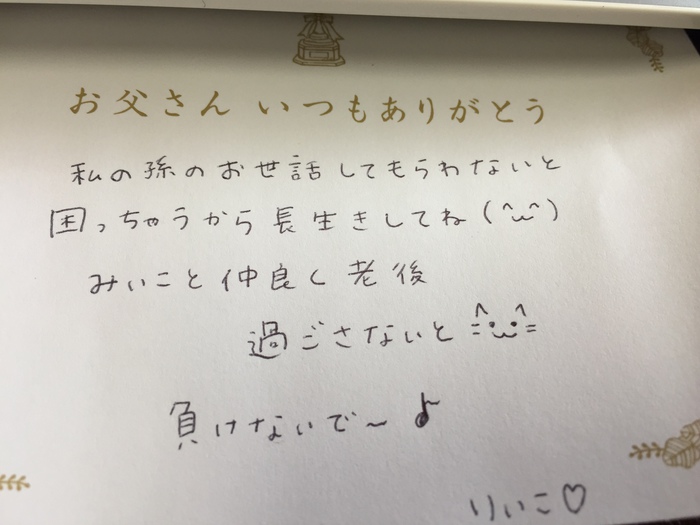 お父さん いつもありがとう
私の孫のお世話してもらわないと
困っちゃうから長生きしてね(^ω^)
みいこと仲良く老後
過ごさないと
負けないで〜♪
りいこ♡